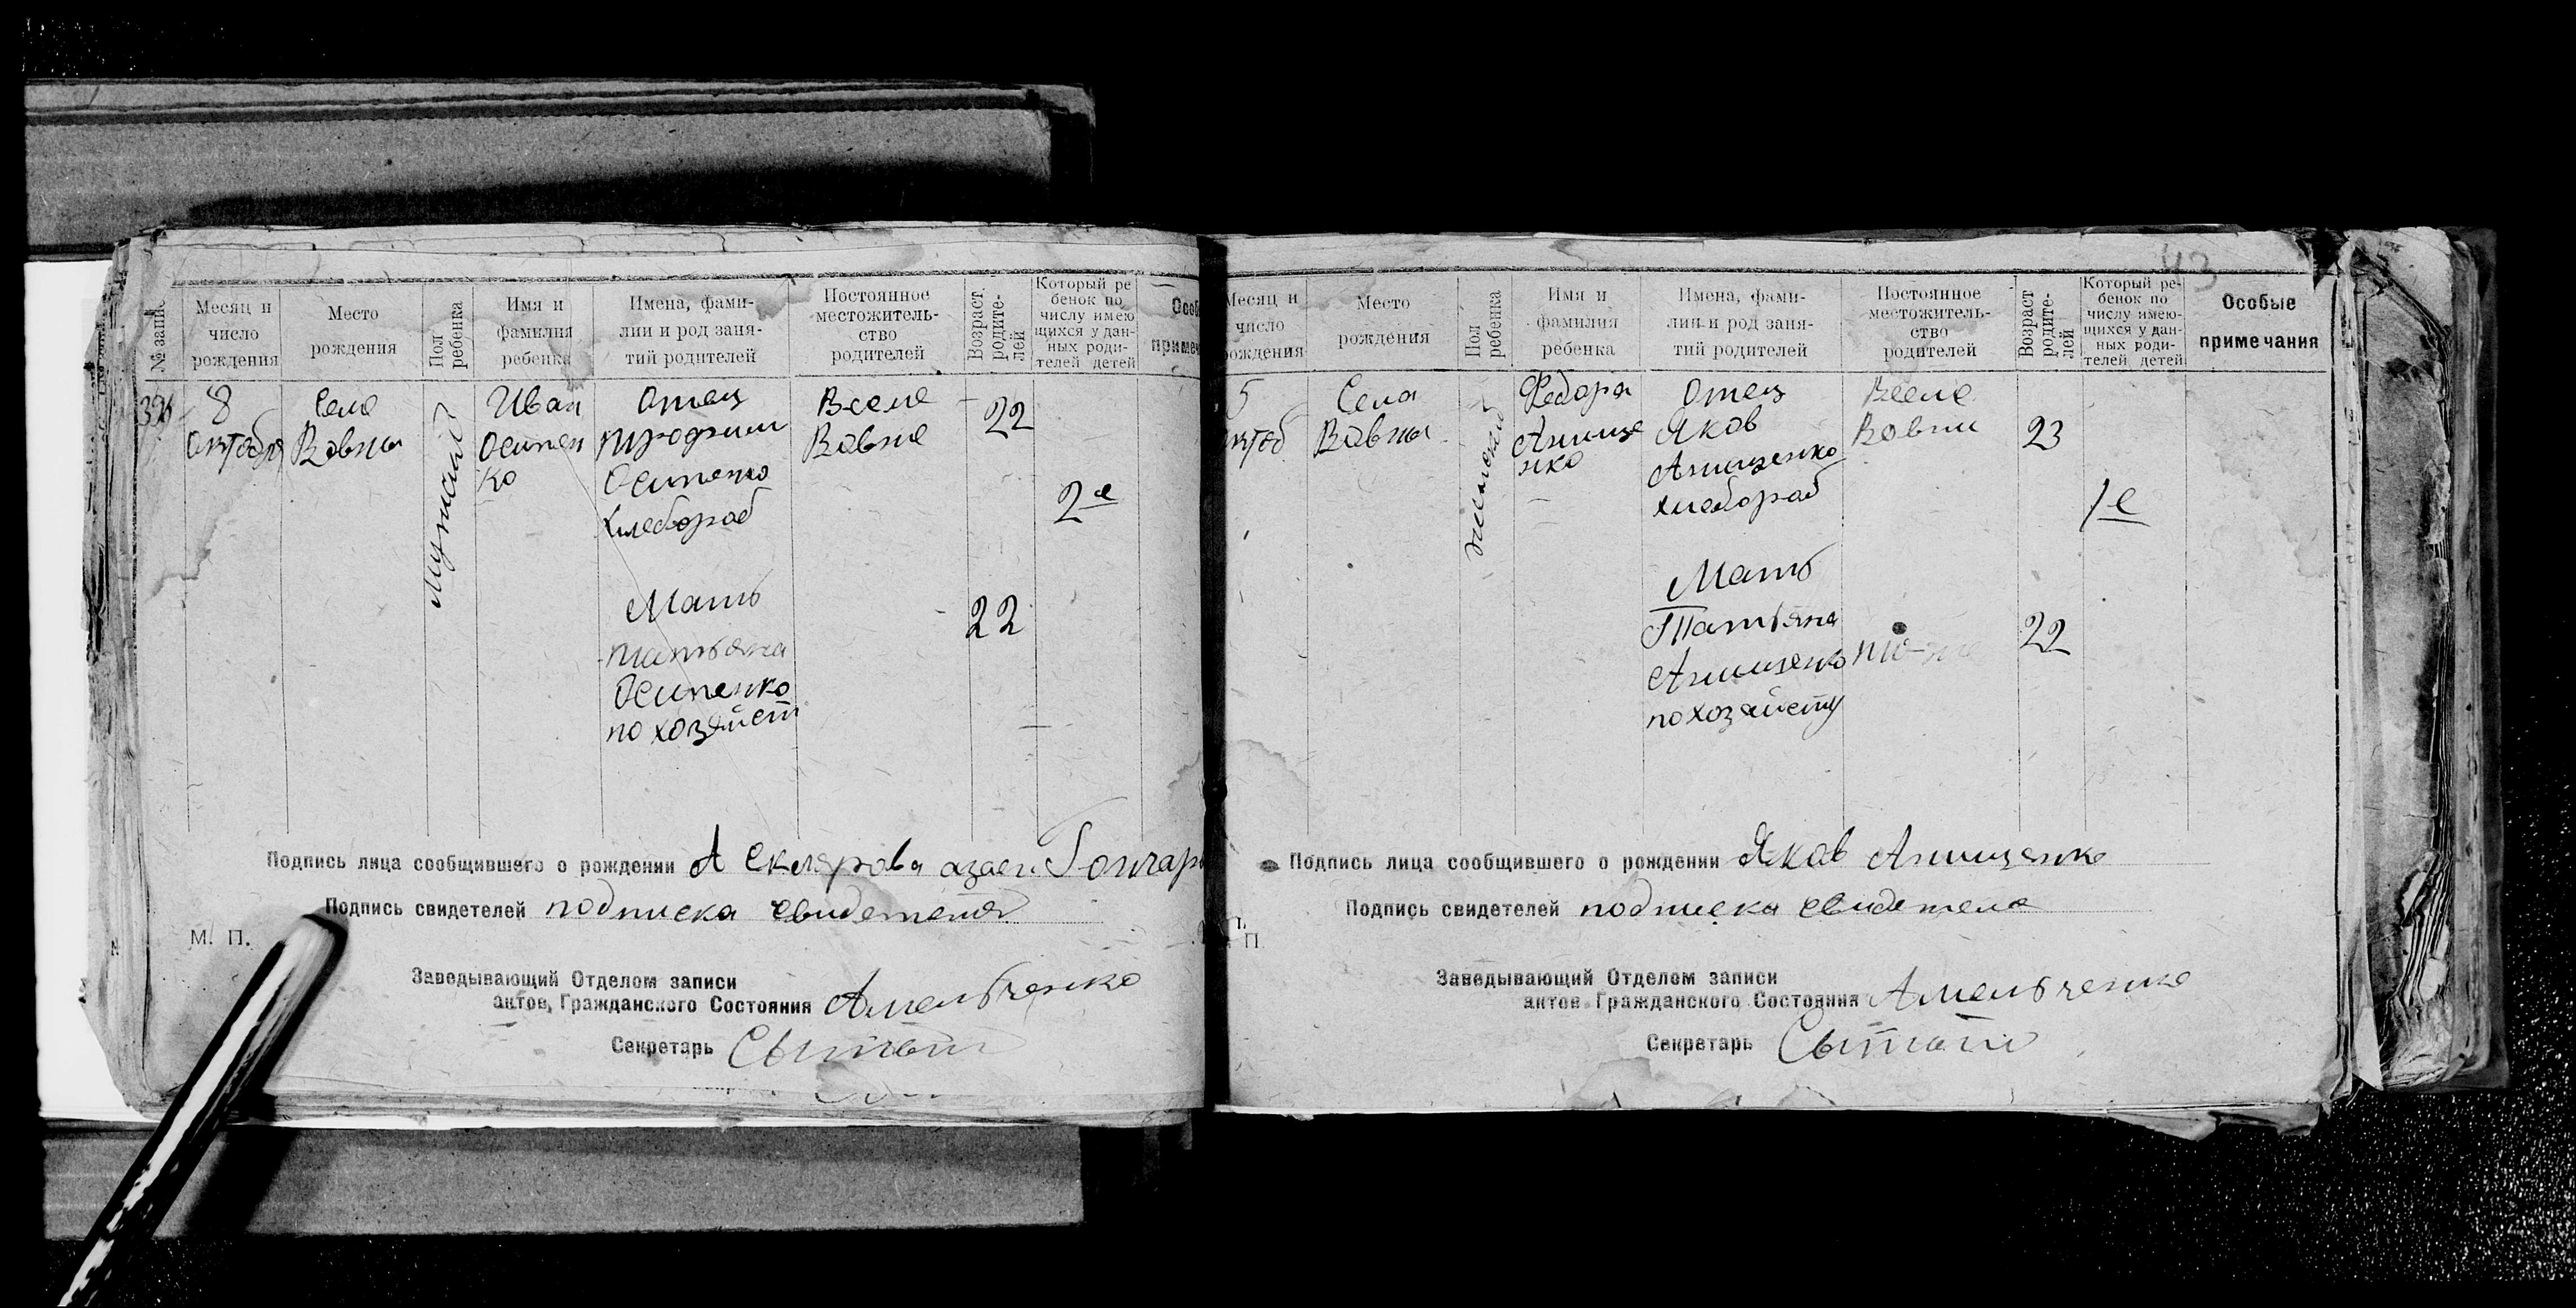 № запис.
Месяц и
число
рождения
Место
рождения
Пол
ребенка
Имя и
фамилия
ребенка
Имена, фами-
лии и род заня-
тий родителей
Постоянное
местожитель-
ство
родителей
Возраст
родите-
лей
Который ре
бенок по
числу имею
щихся у дан-
ных роди-
телей детей
Особ
примеч
8
Октября
Село
Вовны
Мужской
Иван
Осипен
ко
Отец
Трофим
Осипенко
хлебороб
Мать
татьяна
Осипенко
по хозяйст
Вселе
Вовне
22
22
2е
Подпись лица сообщившего о рождении А Склярова Гончар
Подпись свидетелей подписка свидетеля
М. П.
Заведывающий Отделом записи
актов, Гражданского Состояния Амельченко
Секретарь
43
Месяц и
число
рождения
Место
рождения
Пол
ребенка
Имя и
фамилия
ребенка
Имена, фами-
лии и род заня-
тий родителей
Постоянное
местожитель-
ство
родителей
Возраст
родите-
лей
Который ре-
бенок по
числу имею-
щихся у дан-
ных роди-
телей детей
Особые
примечания
5
октоб
Села
Вовны
Федора
Анище
нко
Отец
Яков
Анищенко
хлебороб
Мать
Татьяна
Анищенко
по хозяйству
Вселе
Вовни
то-же
23
22
1е
Подпись лица сообщившего о рождении Яков Анищенко
Подпись свидетелей подписка свидетеля
П.
Заведывающий Отделом записи
актов Гражданского Состояния Амельченко
Секретарь